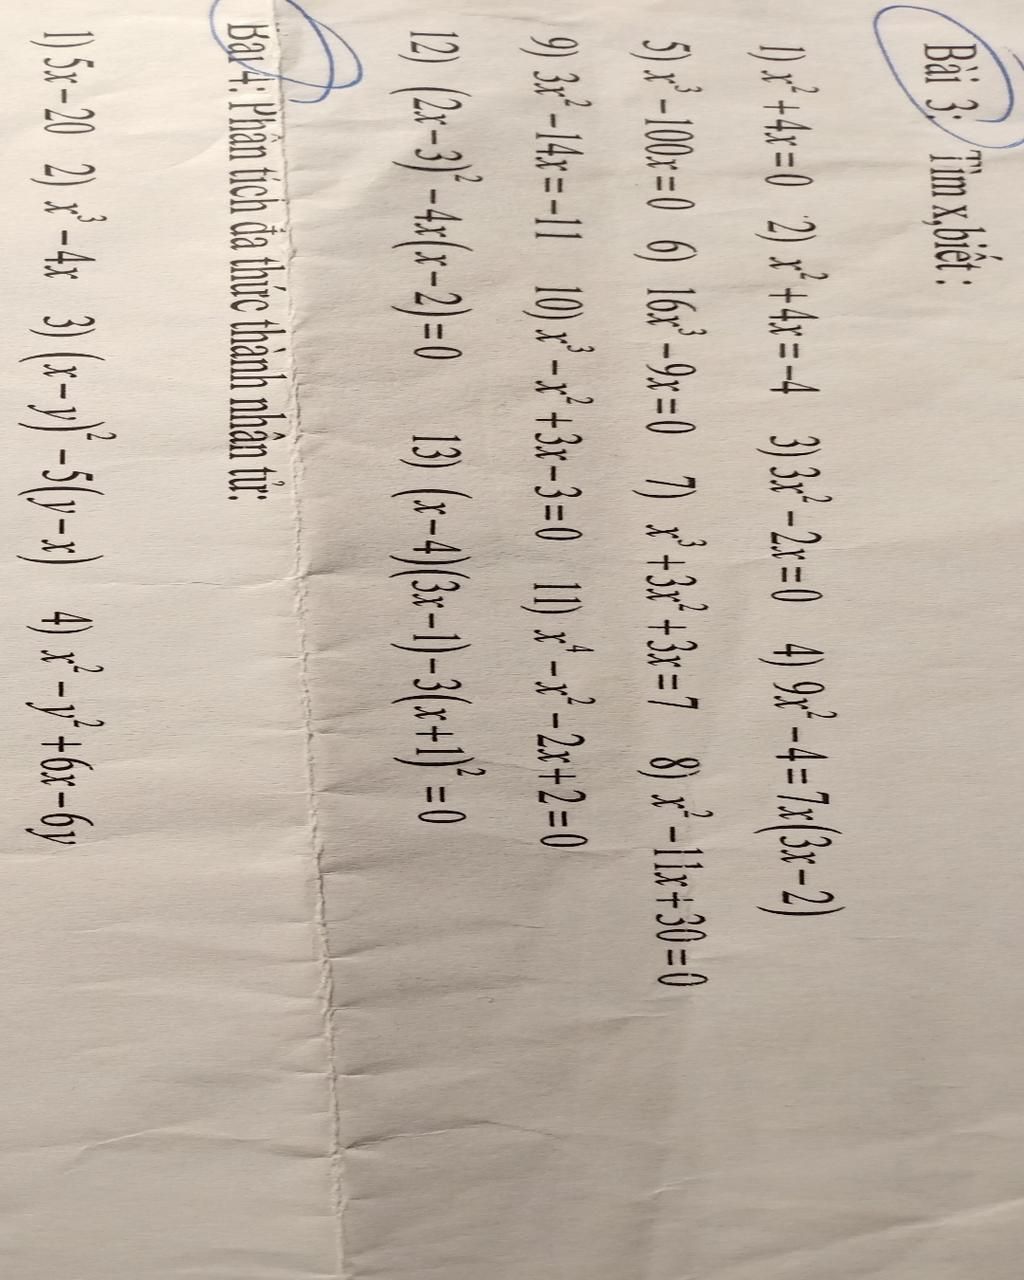 Bài 3: Tìm x,biết :
1) x²+4x=0 2) x²+4x=-4 3) 3x²-2x=0 4) 9x²-4=7x(3x-2)
5) x³-100x=0 6) 16x³-9x=0 7) x³+3x²+3x=7 8) x²-11x+30=0
9) 3x²-14x=-11 10) x³-x²+3x-3=0 11) x⁴-x²-2x+2=0
12) (2x-3)²-4x(x-2)=0 13) (x-4)(3x-1)-3(x+1)²=0
Bài 4: Phân tích đa thức thành nhân tử:
1) 5x-20 2) x³-4x 3) (x-y)²-5(y-x) 4) x²-y²+6x-6y